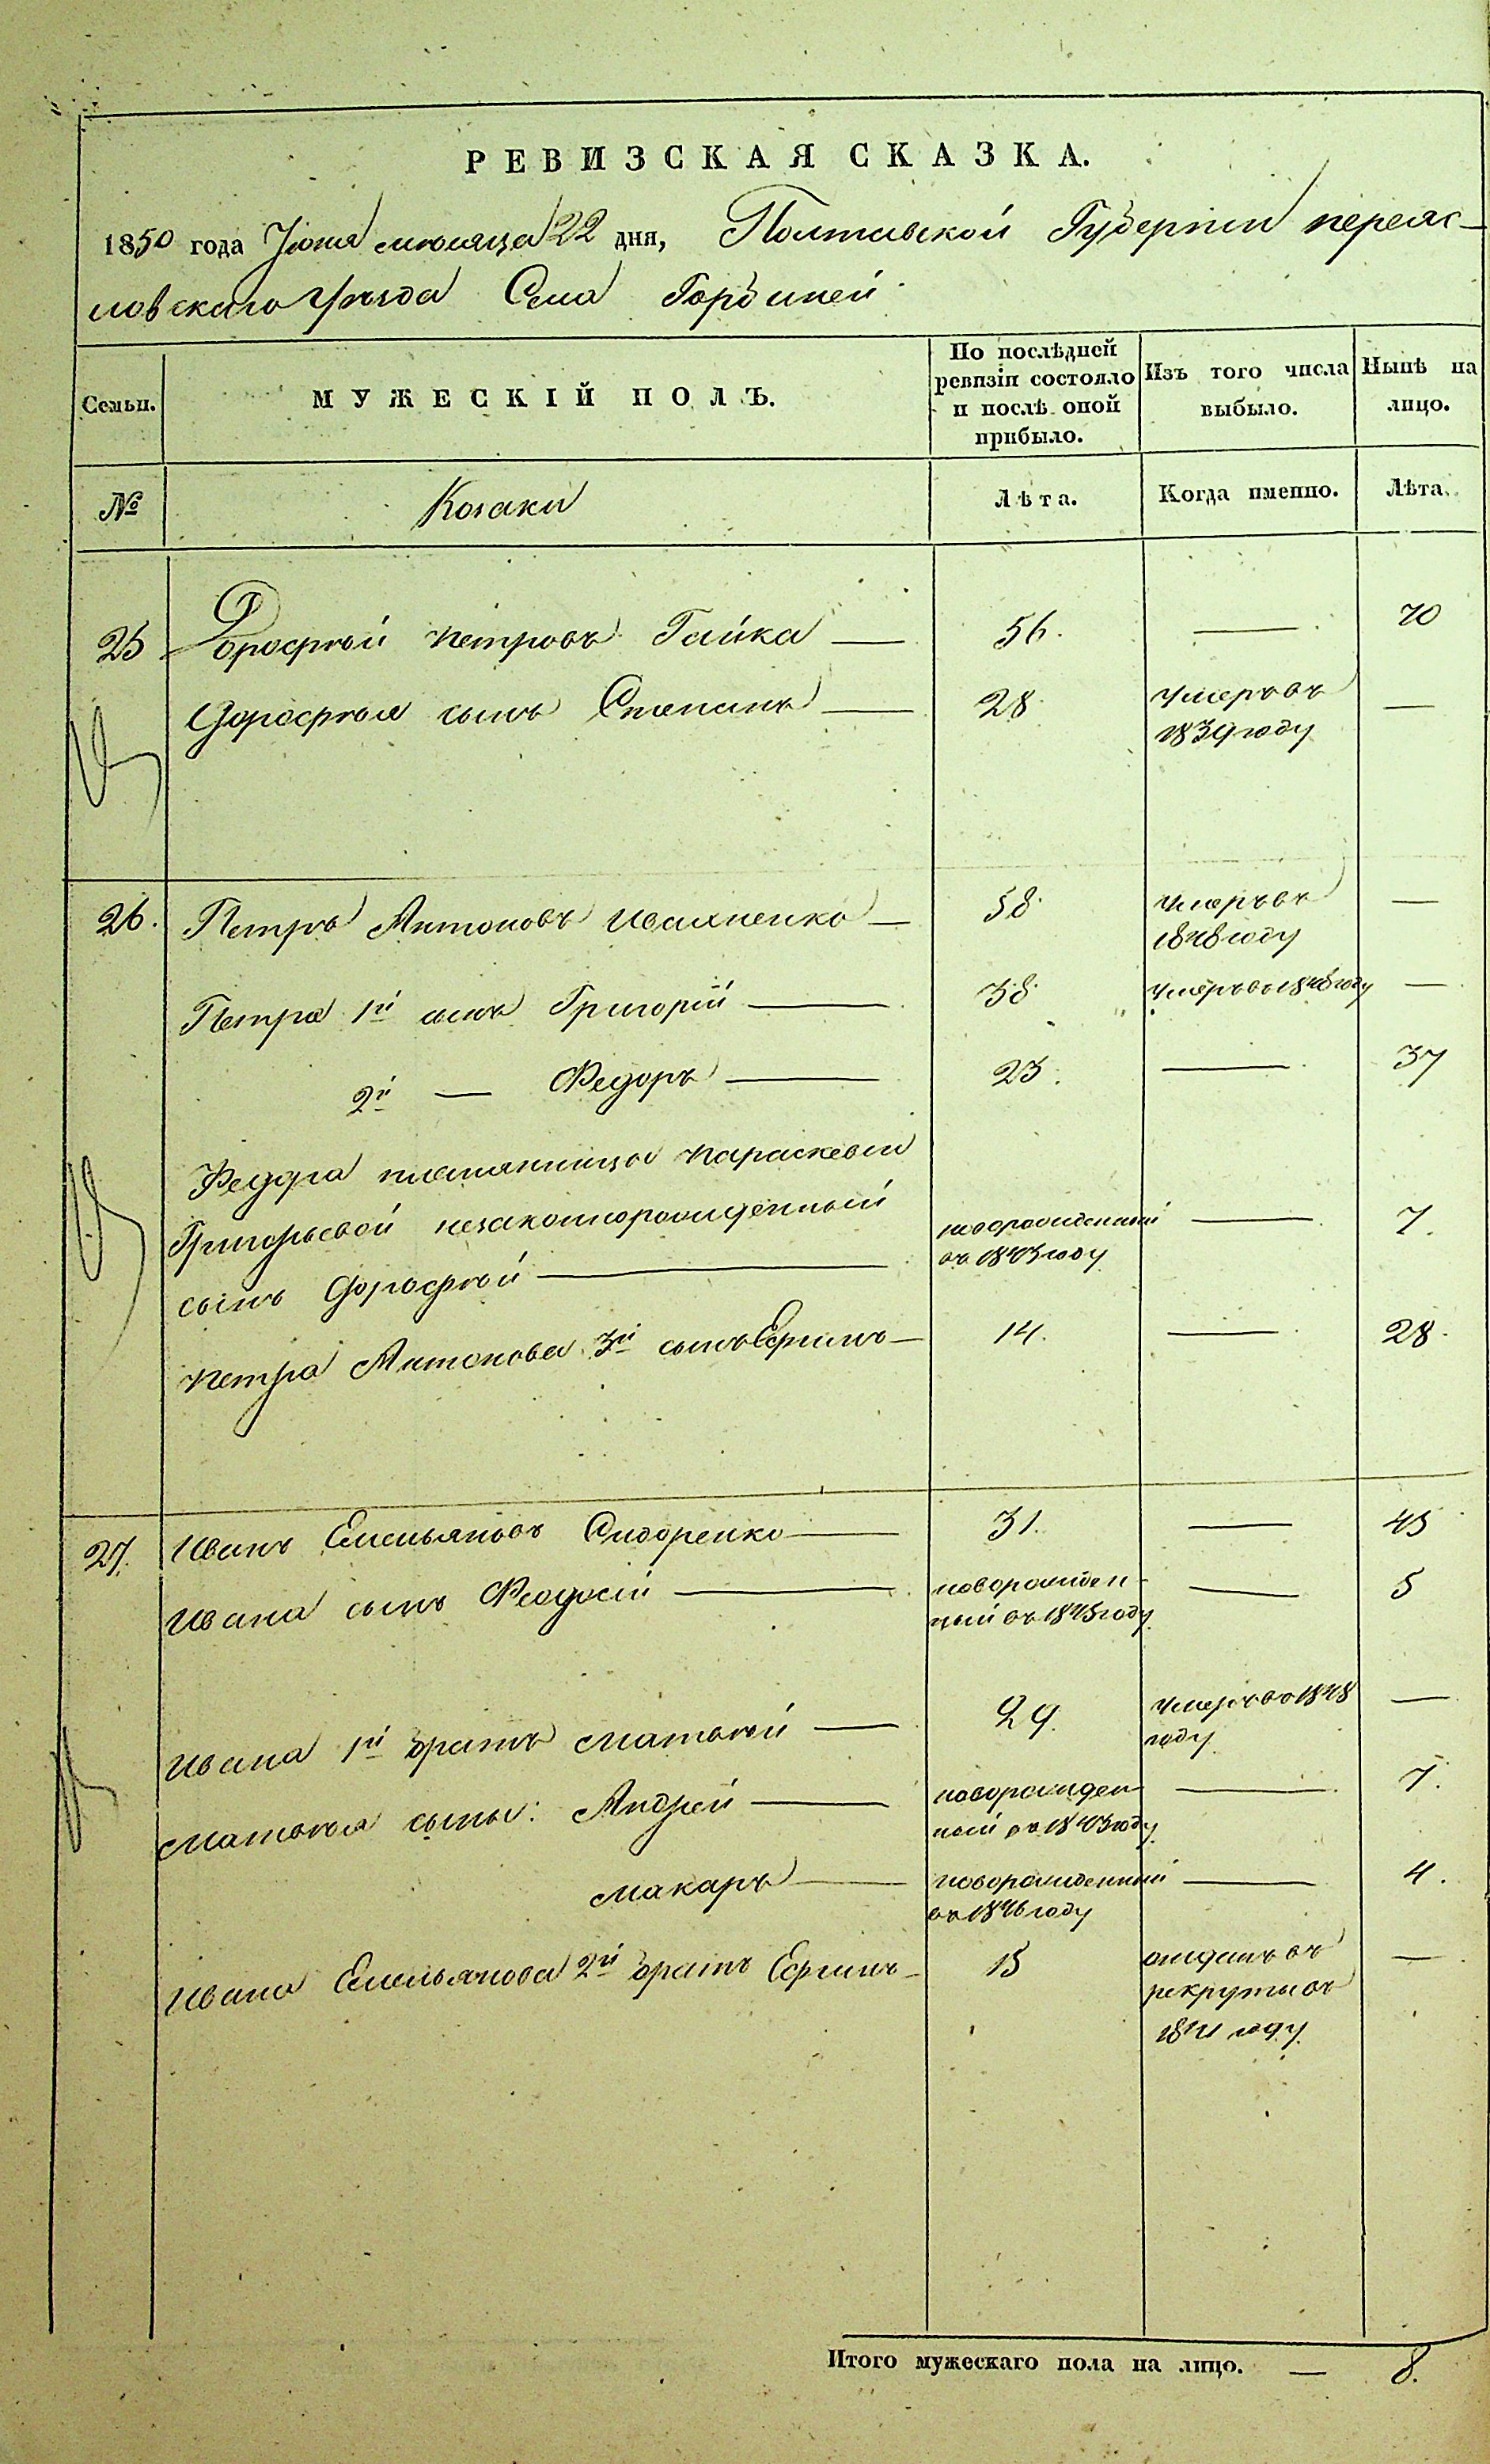 РЕВИЗСКАЯ СКАЗКА.
1850 года Іюня мѣсяца 22 дня, Полтавской Губерніи переяс-
ловскаго Уѣзда Села Горбаней
Семьи.
МУЖЕСКІЙ ПОЛЪ.
По послѣдней ревизіи состояло и послѣ оной прибыло.
Изъ того числа выбыло.
Нынѣ на лицо.
№
Козаки
Лѣта.
Когда именно.
Лѣта.
25 Дорофѣй Петровъ Гайка — 56. — 70
Дорофѣя сынъ Степанъ — 28. умеръ въ —
1839 году
26. Петръ Антоновъ Ивахненко — 58. умеръ въ —
1848 году
Петра 1й сынъ Григорій — 38. умеръ въ 1848 году —
2й — Федоръ — 23. — 37
Федора племянницы Параскевіи
Григорьевой незаконнорожденный новорожденный — 7.
сынъ Дорофѣй — въ 1843 году
Петра Антонова 3й сынъ Ефимъ — 14. — 28.
27. Иванъ Емельяновъ Сидоренко — 31. — 45
Ивана сынъ Феодосій — новорожден- — 5
ный въ 1845 году
Ивана 1й братъ Матвѣй — 29. умеръ въ 1848 —
году
Матвѣя сыны: Андрей — новорожден- — 7.
ный въ 1843 году
Макаръ — новорожденный — 4.
въ 1846 году
Ивана Емельянова 2й братъ Ефимъ — 15 отданъ въ —
рекруты въ
1841 году
Итого мужескаго пола на лицо. — 8.